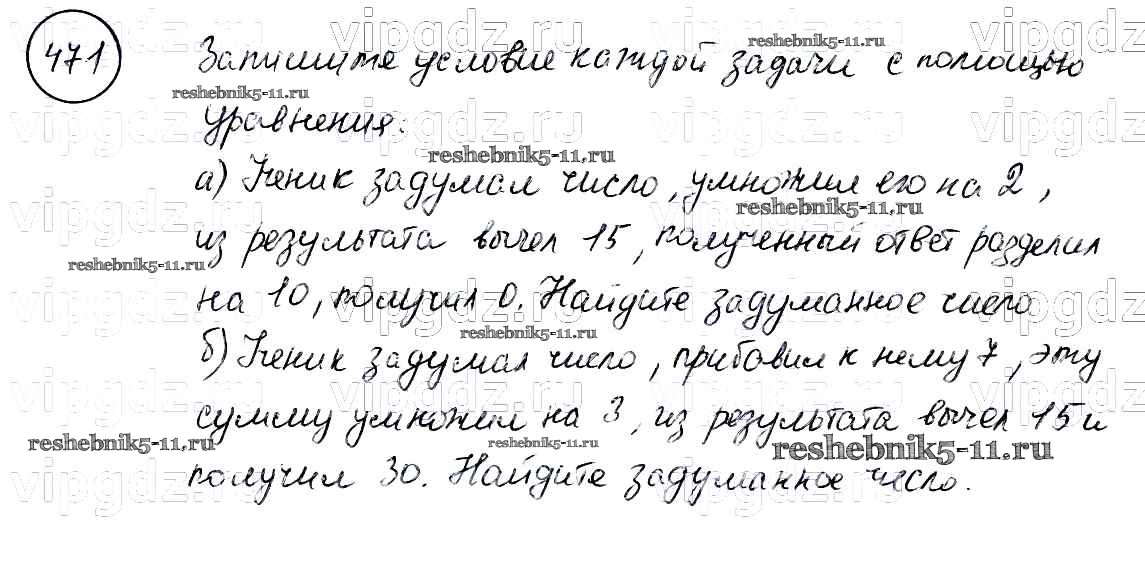 471 Запишите условие каждой задачи с помощью
уравнения:
а) Ученик задумал число, умножил его на 2,
из результата вычел 15, полученный ответ разделил
на 10, получил 0. Найдите задуманное число
б) Ученик задумал число, прибавил к нему 7, эту
сумму умножил на 3, из результата вычел 15 и
получил 30. Найдите задуманное число.
vipgdz.ru
reshebnik5-11.ru